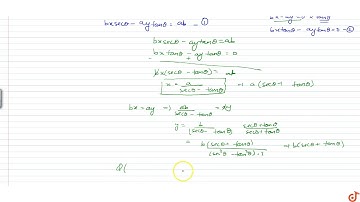 bx secθ - ay tanθ = ab - ①
bx tanθ - ay tanθ = 0 - ②
bx secθ - ay tanθ = ab
bx tanθ - ay tanθ = 0
bx (secθ - tanθ) = ab
x = a / (secθ - tanθ) → a (secθ + tanθ)
bx = ay → ab / (secθ - tanθ) = ay
y = b / (secθ - tanθ) (secθ + tanθ) / (secθ + tanθ)
= b (secθ + tanθ) / (sec²θ - tan²θ) = 1 → b (secθ + tanθ)